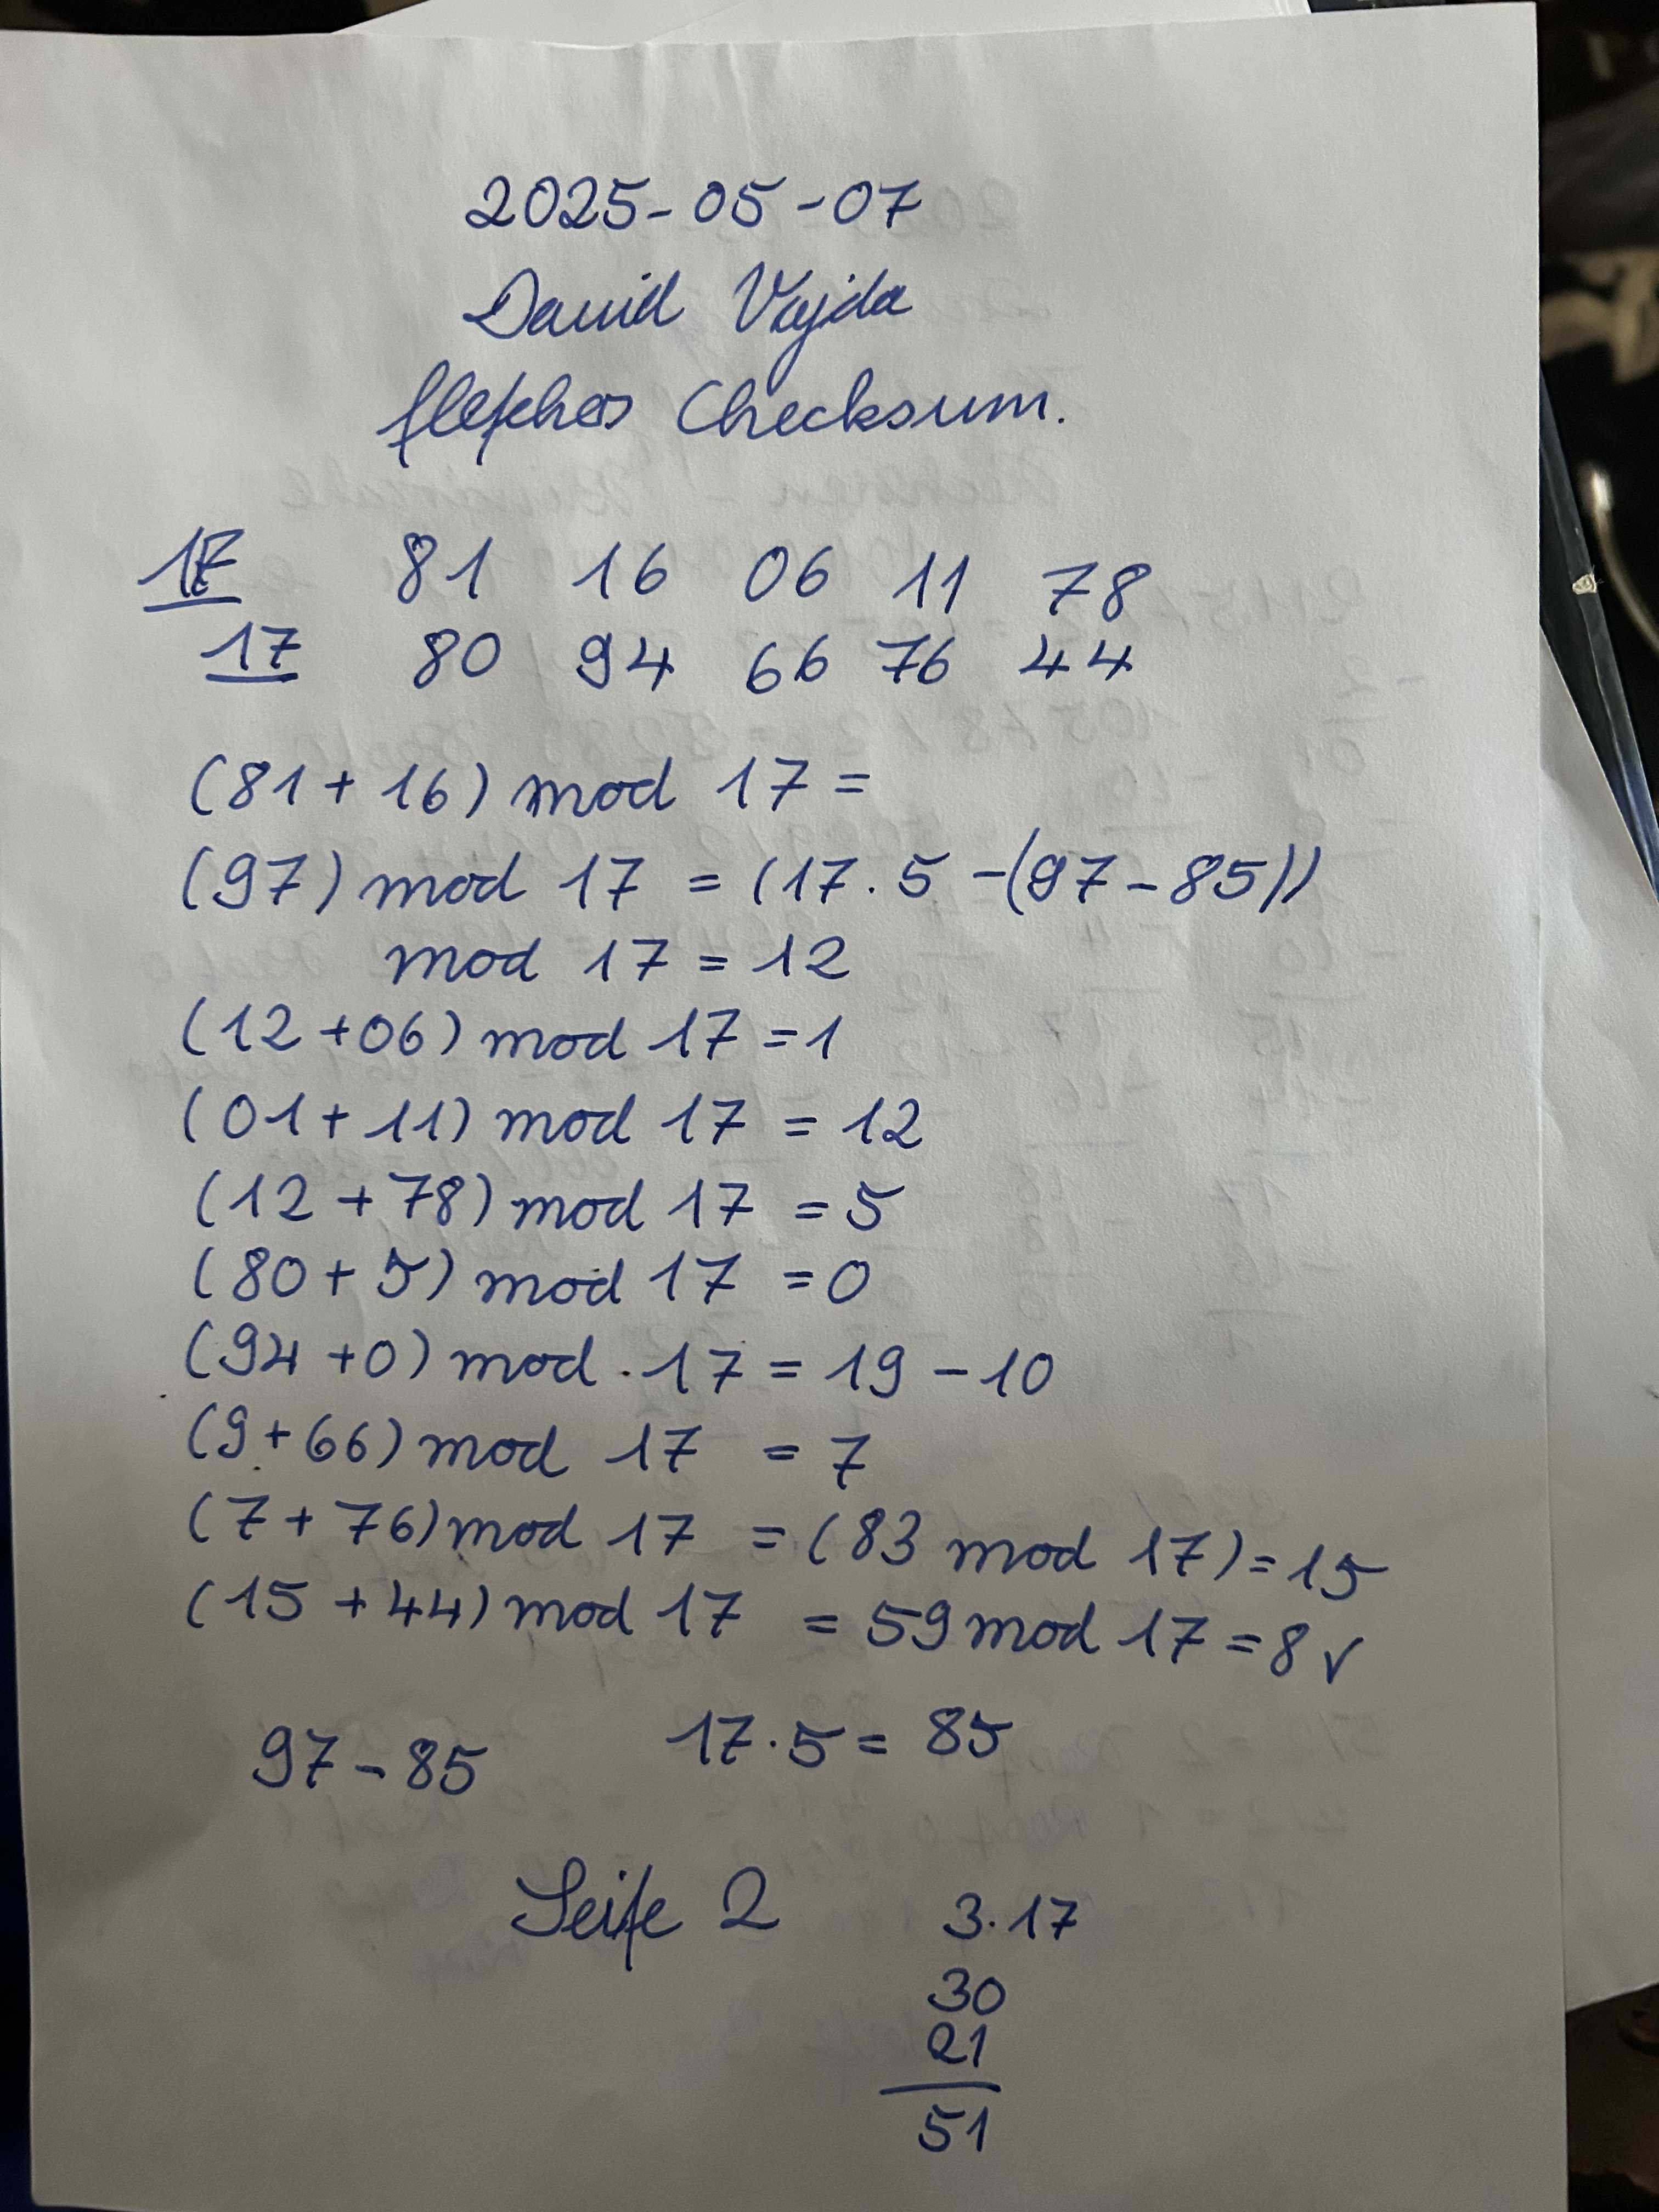 2025-05-07
David Vajda
Checksum.
17 81 16 06 11 78
17 80 94 66 76 44
(81+16) mod 17=
(97) mod 17 = (17.5 -(97-85))
mod 17 = 12
(12 +06) mod 17 =1
(01+11) mod 17 = 12
(12 +78) mod 17 =5
(80+5) mod 17 =0
(94 +0) mod 17 = 19 - 10
(9+66) mod 17 = 7
(7+76) mod 17 = (83 mod 17)=15
(15 +44) mod 17 = 59 mod 17 =8 ✓
97-85 17.5 = 85
Seite 2 3.17
30
21
51